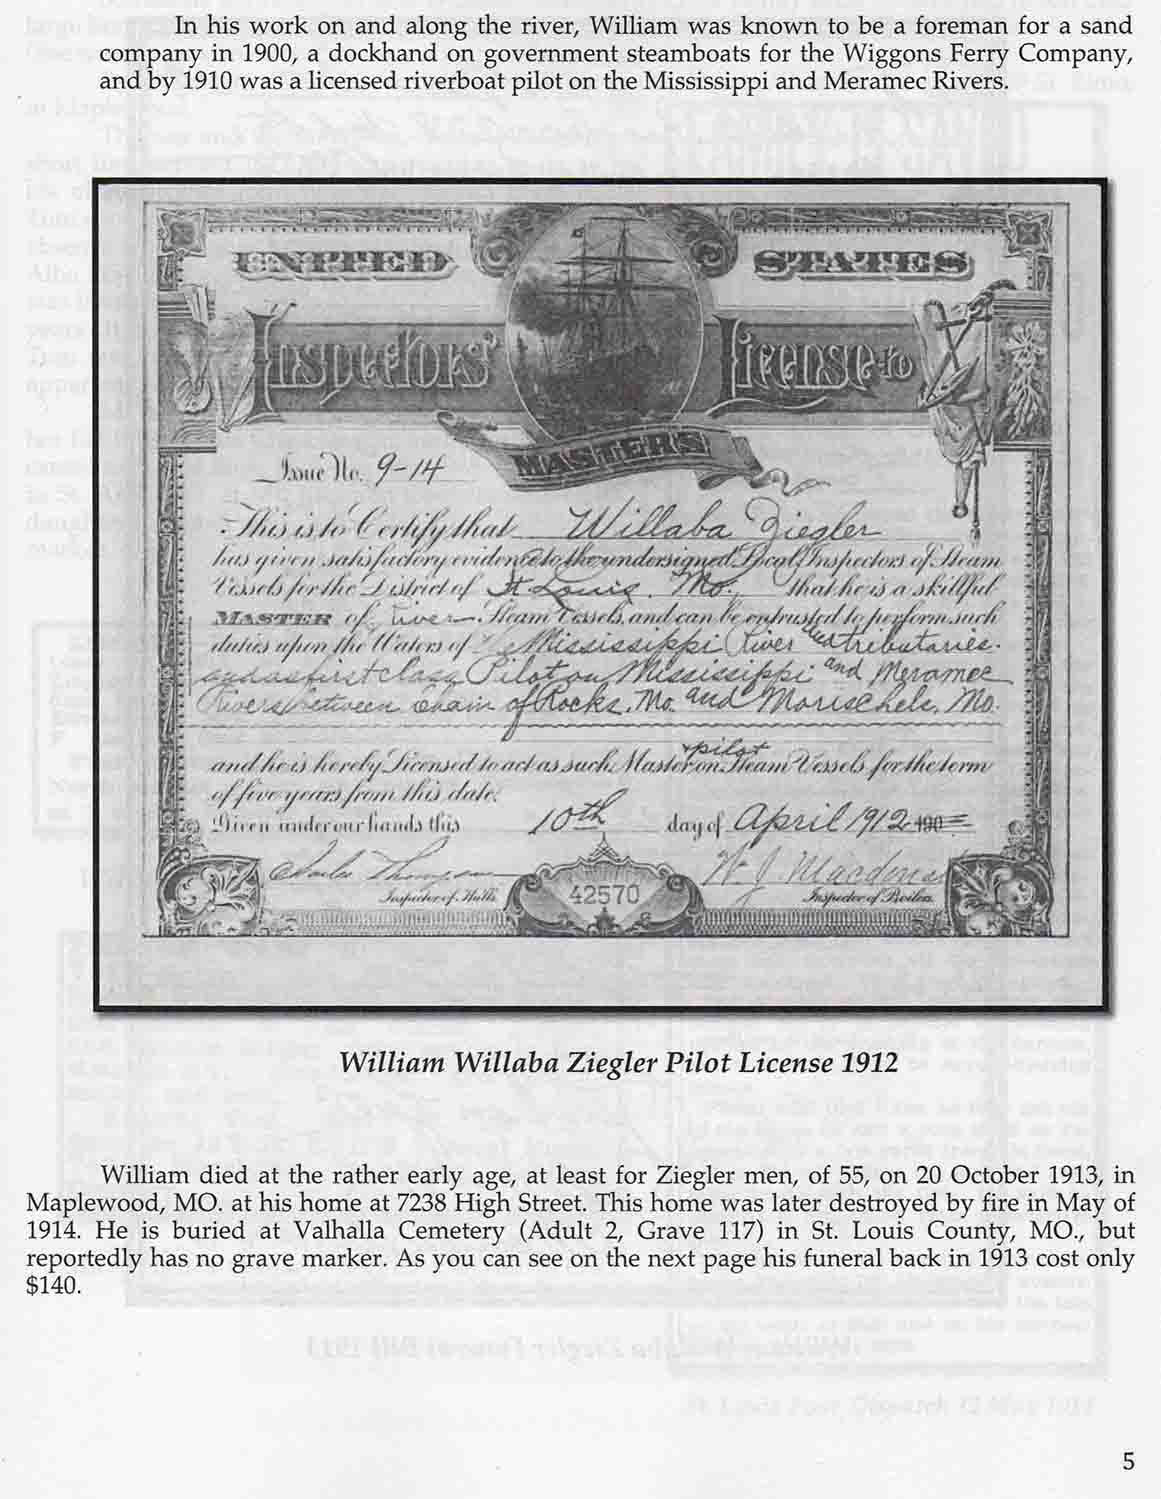 In his work on and along the river, William was known to be a foreman for a sand
company in 1900, a dockhand on government steamboats for the Wiggons Ferry Company,
and by 1910 was a licensed riverboat pilot on the Mississippi and Meramec Rivers.
UNITED STATES
Inspectors' License to
MASTERS
Issue No. 9-14
This is to Certify that Willaba Ziegler
has given satisfactory evidence to the undersigned Local Inspectors of Steam
Vessels for the District of St Louis, Mo., that he is a skillful
MASTER of River Steam Vessels, and can be entrusted to perform such
duties upon the Waters of Mississippi River and tributaries.
and as first class Pilot on Mississippi and Meramec
Rivers between Chain of Rocks, Mo. and Morischels, Mo.
and he is hereby Licensed to act as such Master & pilot on Steam Vessels for the term
of five years from this date.
Given under our hands this 10th day of April 1912 190
Charles Thompson W. J. Macdona
Inspector of Hulls. Inspector of Boilers.
42570
William Willaba Ziegler Pilot License 1912
William died at the rather early age, at least for Ziegler men, of 55, on 20 October 1913, in
Maplewood, MO. at his home at 7238 High Street. This home was later destroyed by fire in May of
1914. He is buried at Valhalla Cemetery (Adult 2, Grave 117) in St. Louis County, MO., but
reportedly has no grave marker. As you can see on the next page his funeral back in 1913 cost only
$140.
5